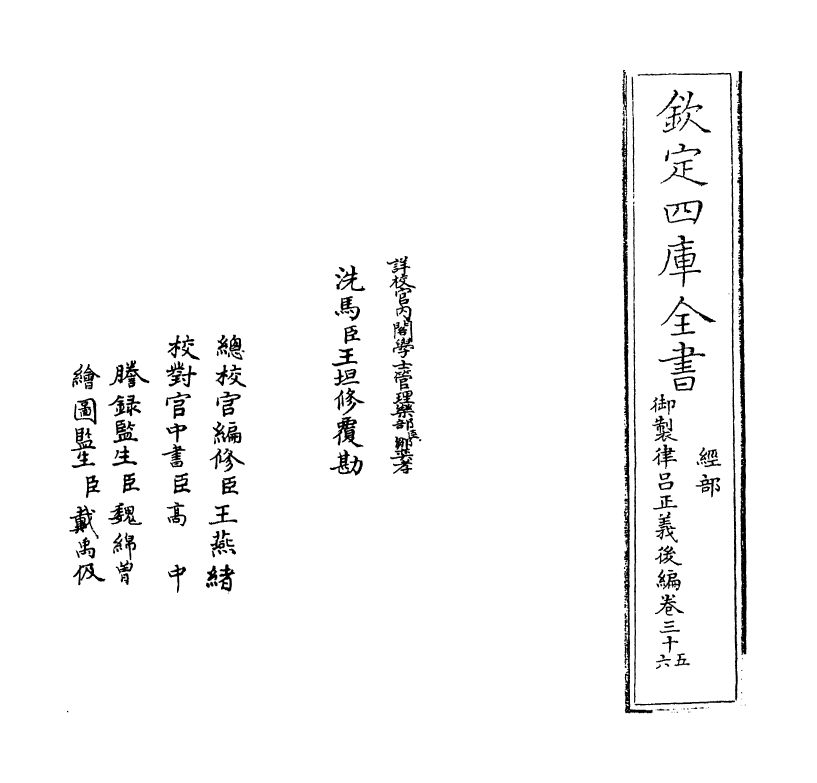 欽定四庫全書
經部
御製律呂正義後編卷三十五六
詳校官內閣學士管理樂部臣鄒奕孝
洗馬臣王坦修覆勘
總校官編修臣王燕緒
校對官中書臣高中
謄錄監生臣魏綿曾
繪圖監生臣戴禹伋